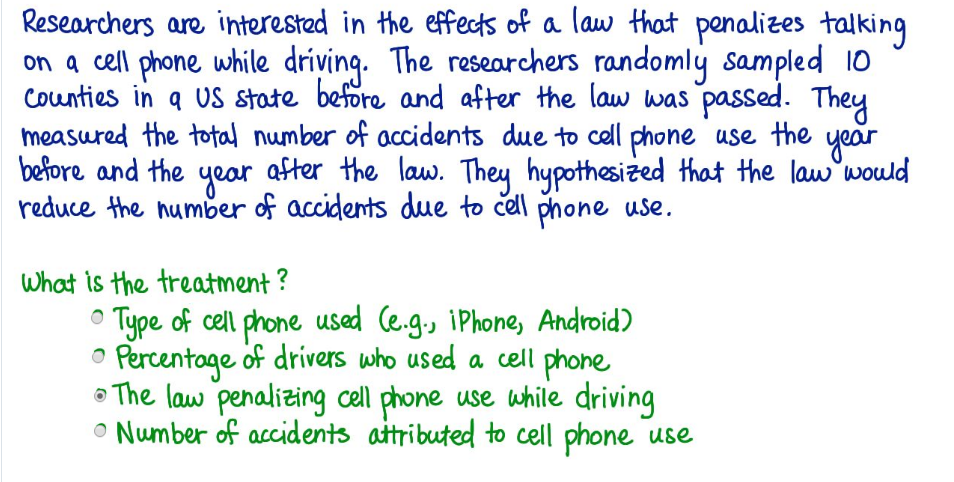 Researchers are interested in the effects of a law that penalizes talking
on a cell phone while driving. The researchers randomly sampled 10
Counties in a US state before and after the law was passed. They
measured the total number of accidents due to cell phone use the year
before and the year after the law. They hypothesized that the law would
reduce the number of accidents due to cell phone use.
What is the treatment?
Type of cell phone used (e.g., iPhone, Android)
Percentage of drivers who used a cell phone
The law penalizing cell phone use while driving
Number of accidents attributed to cell phone use